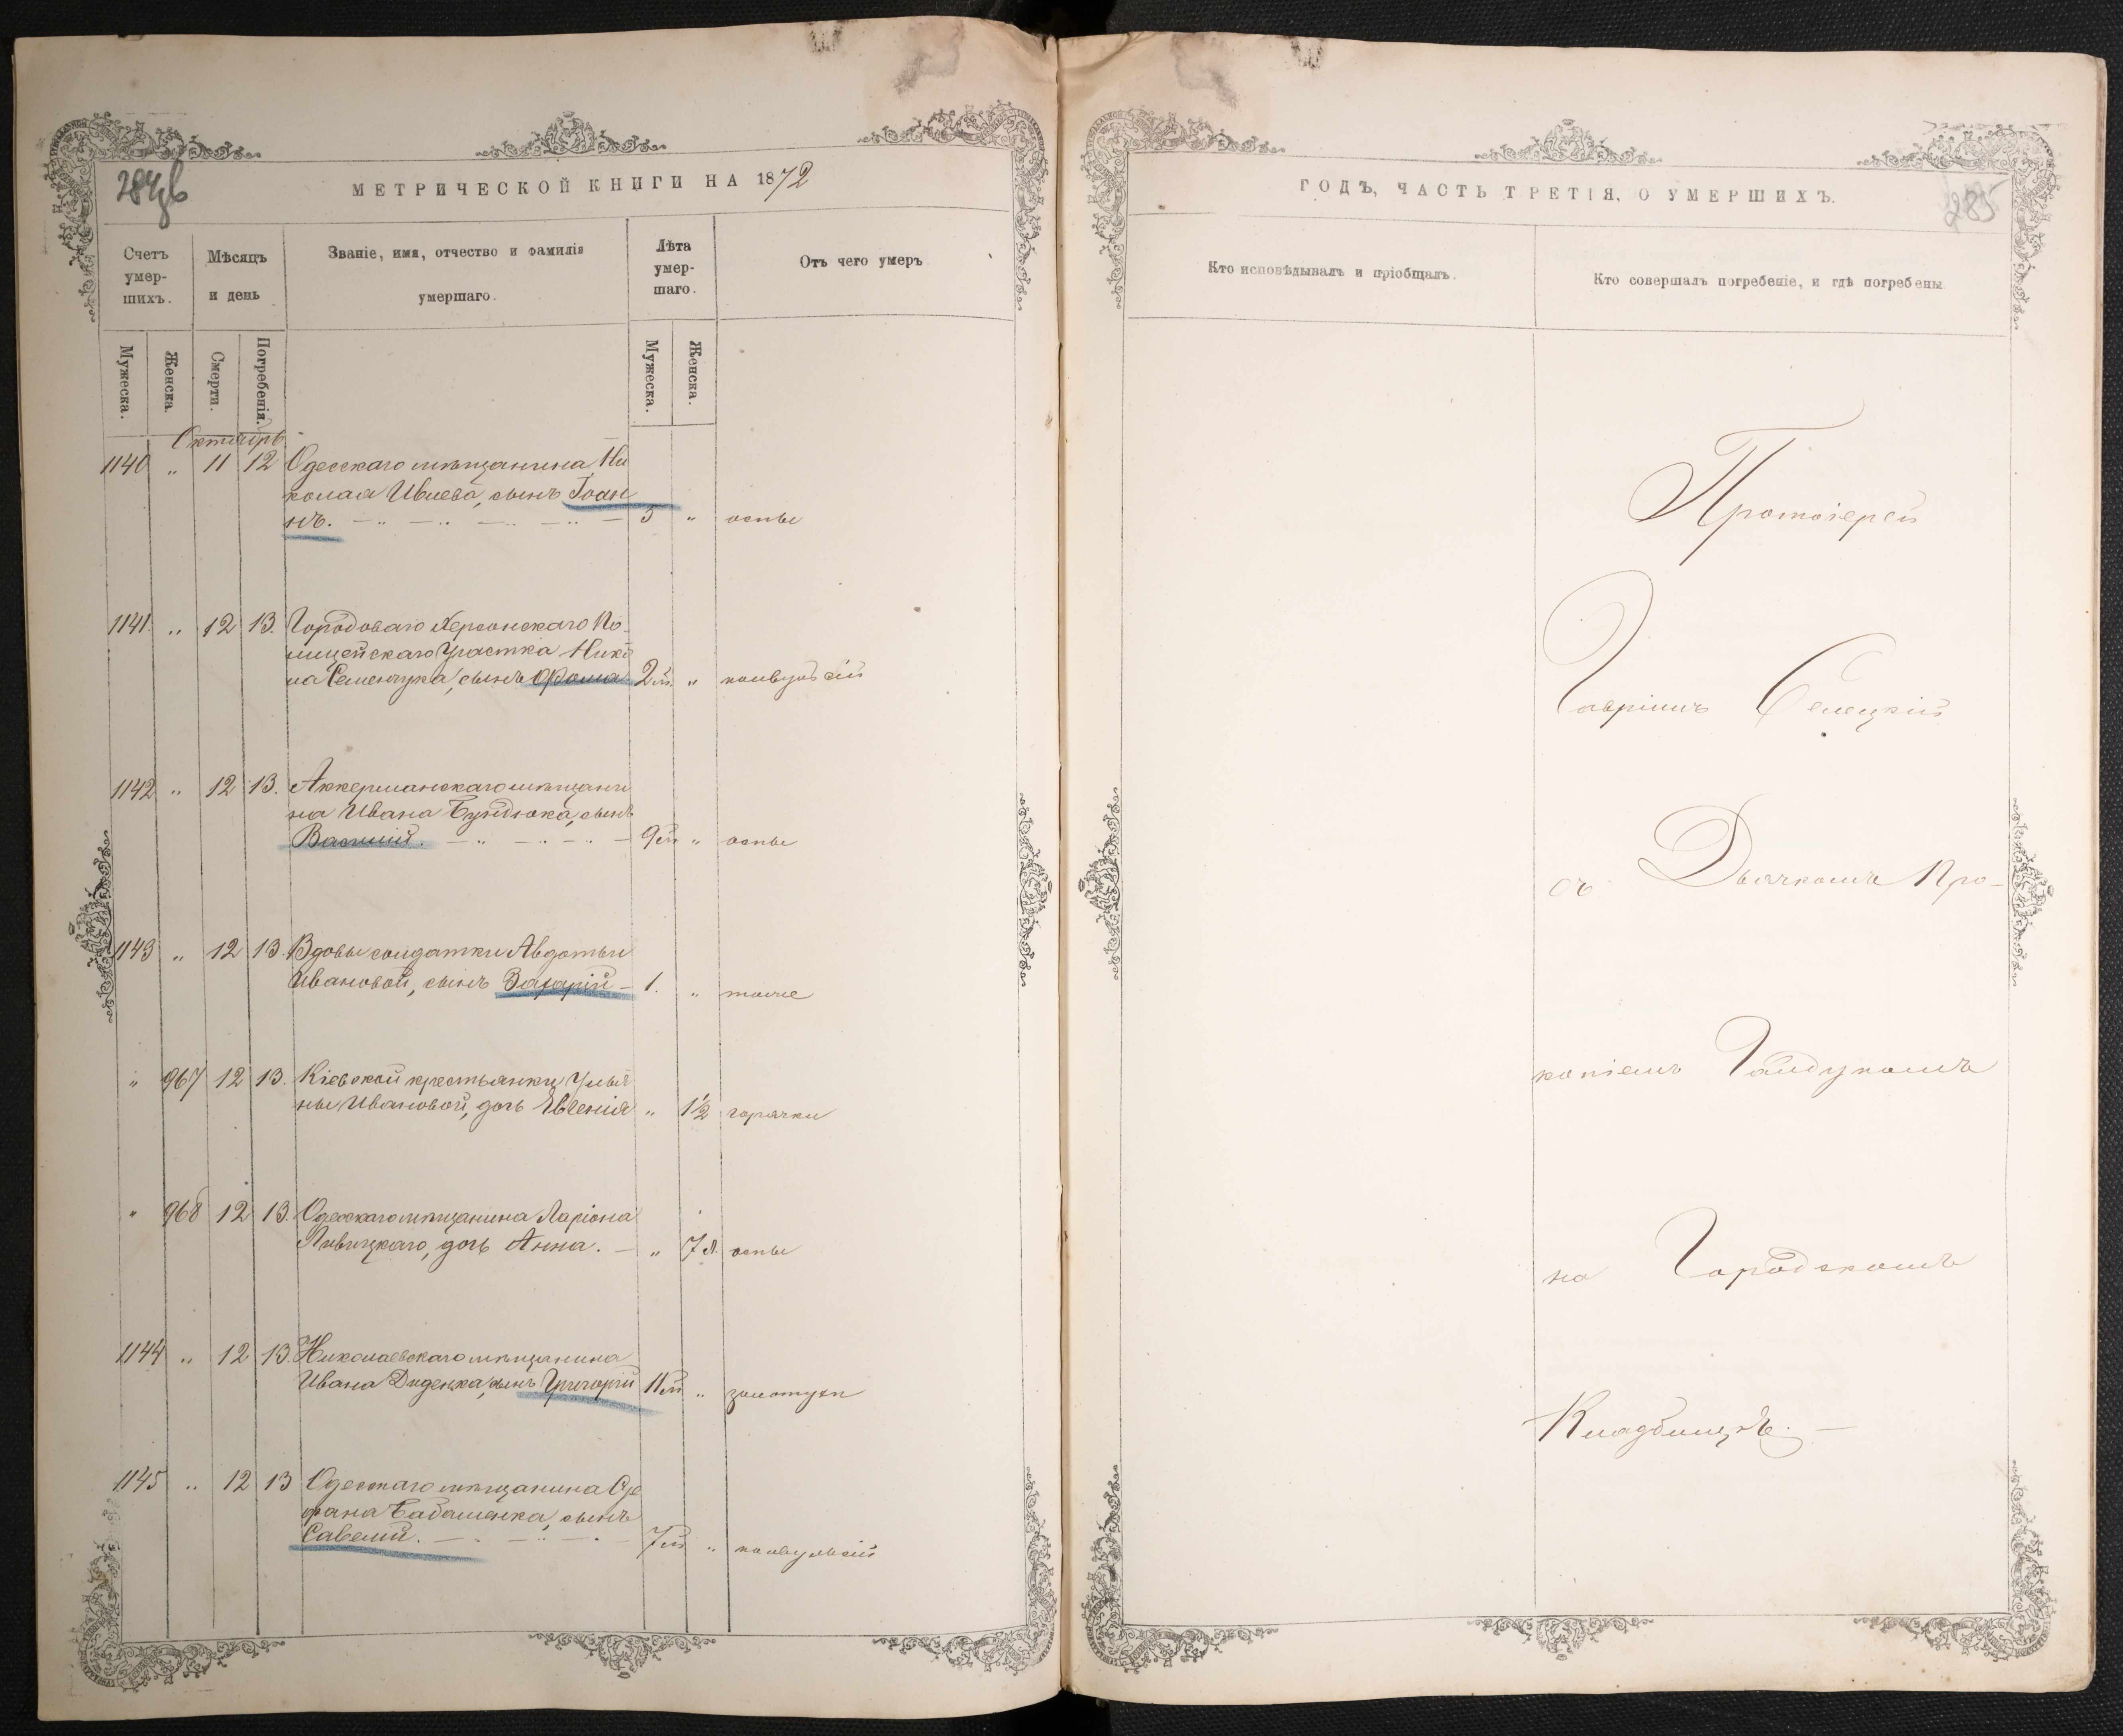 284об
МЕТРИЧЕСКОЙ КНИГИ НА 1872
Счетъ умер-шихъ.
Мѣсяцъ и день
Званіе, имя, отчество и фамилія умершаго.
Лѣта умер-шаго.
Отъ чего умеръ
Мужеска.
Женска.
Смерти.
Погребенія.
Мужеска.
Женска.
Октябрь
1140 " 11 12 Одесскаго мѣщанина Ни
колая сынъ Іоан
нъ. 3 " оспы
1141 " 12 13. Городоваго Херсонскаго По
лицейскаго Участка Нико
ла Семенчука, сынъ Ѳома 2 м. " конвульсій
1142 " 12 13. Аккерманскаго мѣщани
на Ивана сынъ
Василій. 9 м " оспы
1143 " 12 13. Вдовы солдатки Авдотьи
Ивановой, сынъ Захарій 1. " тоже
" 967 12 13. Кіевской крестьянки Улья
ны Ивановой, дочь Евгенія " 1½ горячки
" 968 12 13. Одесскаго мѣщанина Ларіона
Ливицкаго, дочь Анна. " 7 л. оспы
1144 " 12 13. Николаевскаго мѣщанина
Ивана Диденка, сынъ Григорій 11 м " золотухи
1145 " 12 13 Одесскаго мѣщанина Сте
фана сынъ
Савелій. 7 м " конвульсій
ГОДЪ, ЧАСТЬ ТРЕТІЯ, О УМЕРШИХЪ.
285
Кто исповѣдывалъ и пріобщалъ.
Кто совершалъ погребеніе, и гдѣ погребены
Протоіерей
Гавріилъ Селецкій
съ Дьячкомъ Про-
копіемъ Гайдукомъ
на Городскомъ
Кладбищѣ.